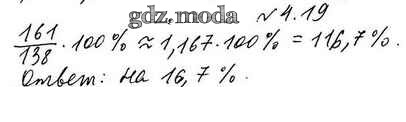 gdz.moda № 4.19
161/138 · 100 % ≈ 1,167 · 100 % = 116,7 %.
Ответ: на 16,7 %.